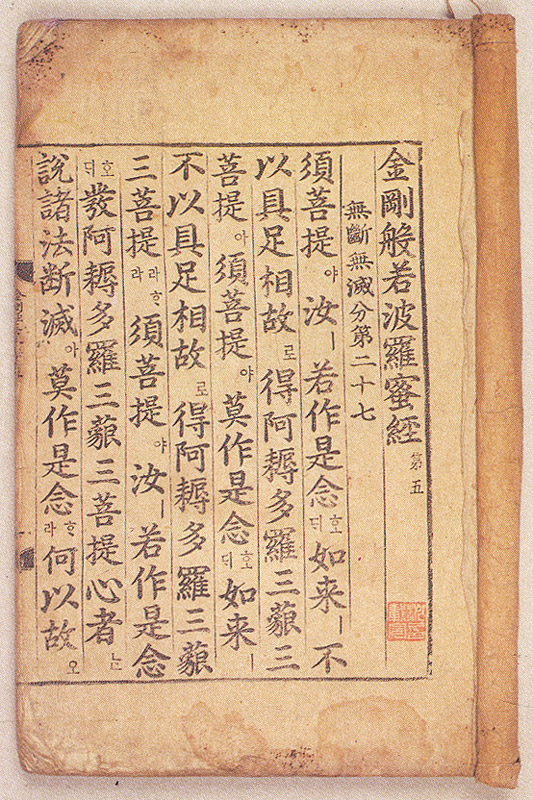 金剛般若波羅蜜經 第五
無斷無滅分第二十七
須菩提야汝ㅣ若作是念호ᄃᆡ如来ㅣ不
以具足相故로得阿耨多羅三藐三
菩提아須菩提야莫作是念호ᄃᆡ如来ㅣ
不以具足相故로得阿耨多羅三藐
三菩提라ᄒᆞ라須菩提야汝ㅣ若作是念
호ᄃᆡ發阿耨多羅三藐三菩提心者ᄂᆞᆫ
說諸法断滅아莫作是念ᄒᆞ라何以故오